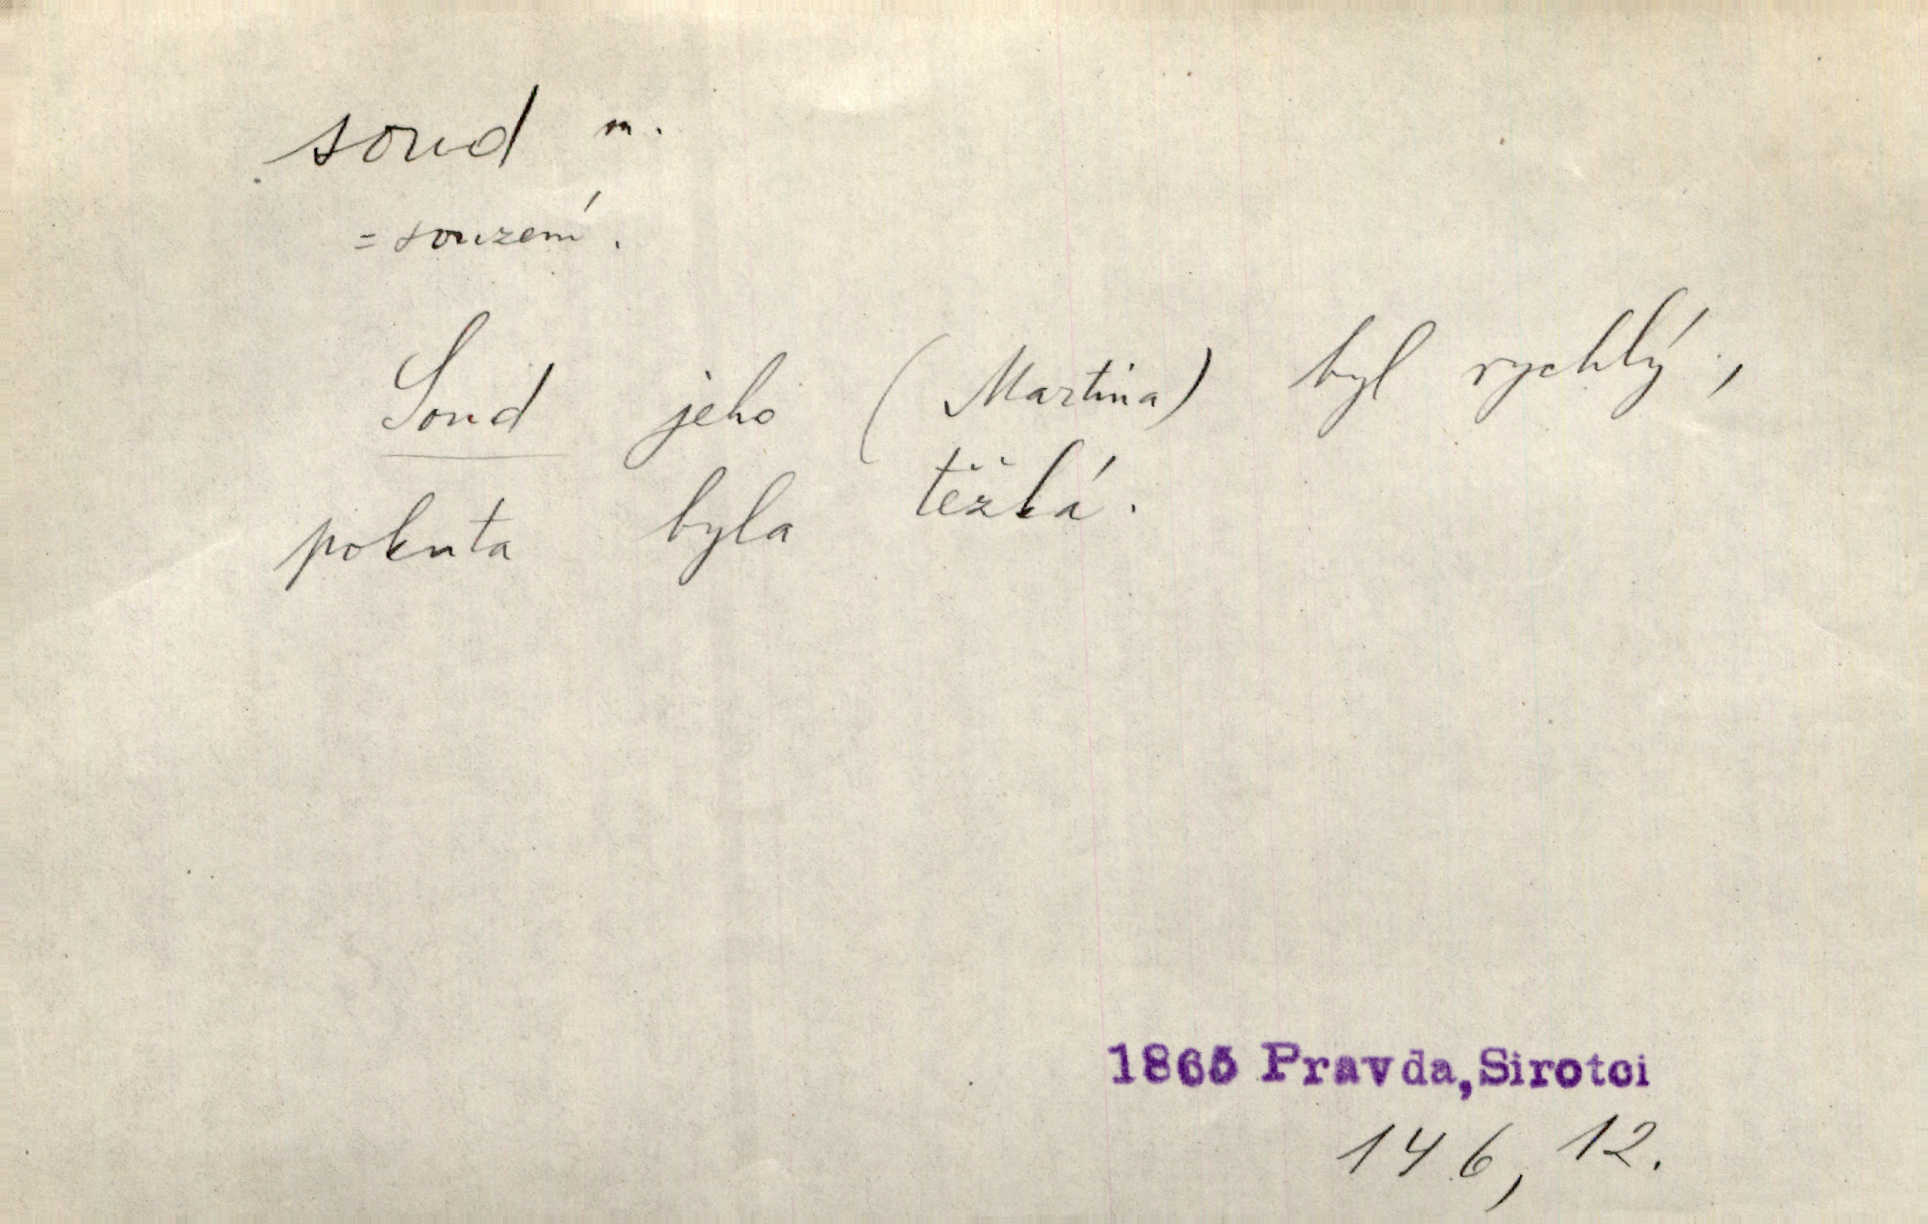 soud m.
= souzení.
Soud jeho (Martina) byl rychlý,
pokuta byla těžká.
1865 Pravda, Sirotci
146, 12.